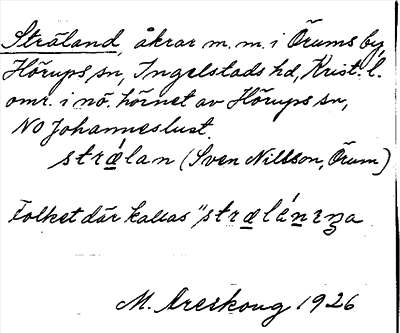 Sträland, åkrar m. m. i Örums by,
Hörups sn, Ingelstads hd, Krist. l.
omr. i nö. hörnet av Hörups sn,
NO Johanneslust.
strǽlan (Sven Nilsson, Örum)
Folket där kallas "
M. Areskoug 1926